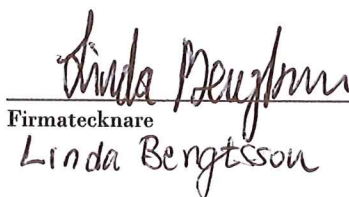 Linda Bengtsson
Firmatecknare
Linda Bengtsson